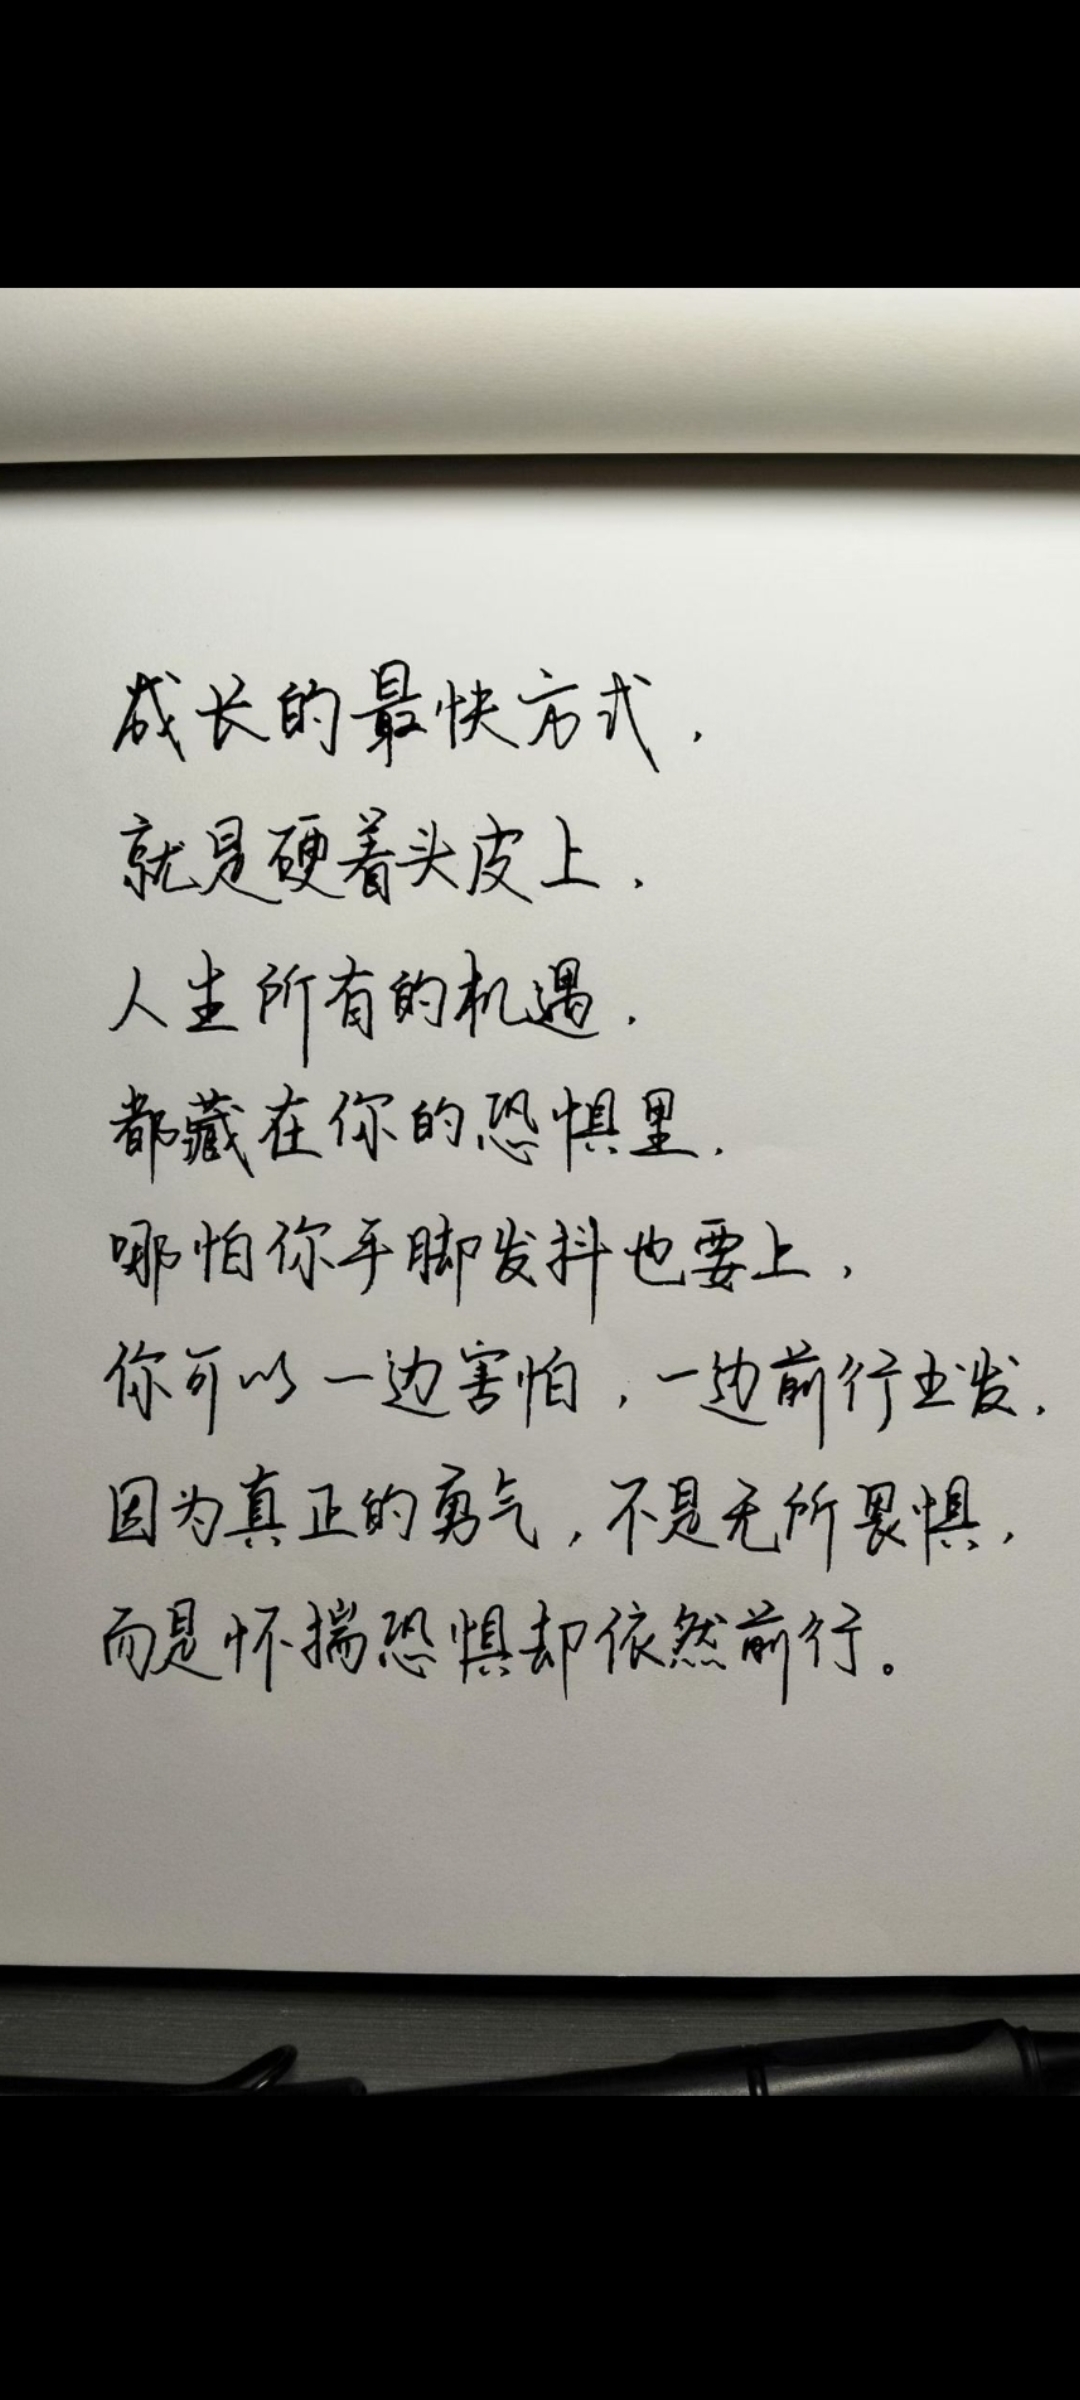 成长的最快方式，
就是硬着头皮上，
人生所有的机遇，
都藏在你的恐惧里，
哪怕你手脚发抖也要上，
你可以一边害怕，一边前行出发，
因为真正的勇气，不是无所畏惧，
而是怀揣恐惧却依然前行。